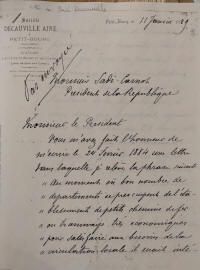 Société
DECAUVILLE AINÉ
PETIT-BOURG
Petit-Bourg, le 11 Janvier 1889
Par envoyé
Monsieur Sadi-Carnot
Président de la République
Monsieur le Président
Vous m'avez fait l'honneur de
m'écrire le 24 Février 1884 une lettre
dans laquelle je relève la phrase suivante
" Au moment où bon nombre de
" départements se préoccupent de l'éta-
" blissement de petits chemins de fer
" ou tramways très économiques
" pour satisfaire aux besoins de la
" circulation locale il serait inté-